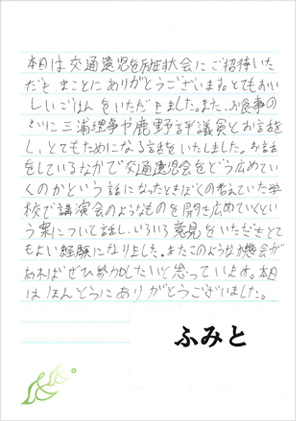 本日は交通遺児を励ます大会にご招待いた
だき、まことにありがとうございます。とてもおい
しいごはんをいただきました。また、お食事の
さいに三浦理事や鹿野評議員とお話を
し、とてもためになる話をいたしました。お話
をしているなかで交通遺児会をどう広めてい
くのかという話になったときぼくの考えていた学
校で講演会のようなものを開き広めていくとい
う案について話し、いろいろ意見をいただきとて
もよい経験になりました。またこのような機会が
あればぜひ参加したいと思っています。本日
はほんとうにありがとうございました。
ふみと